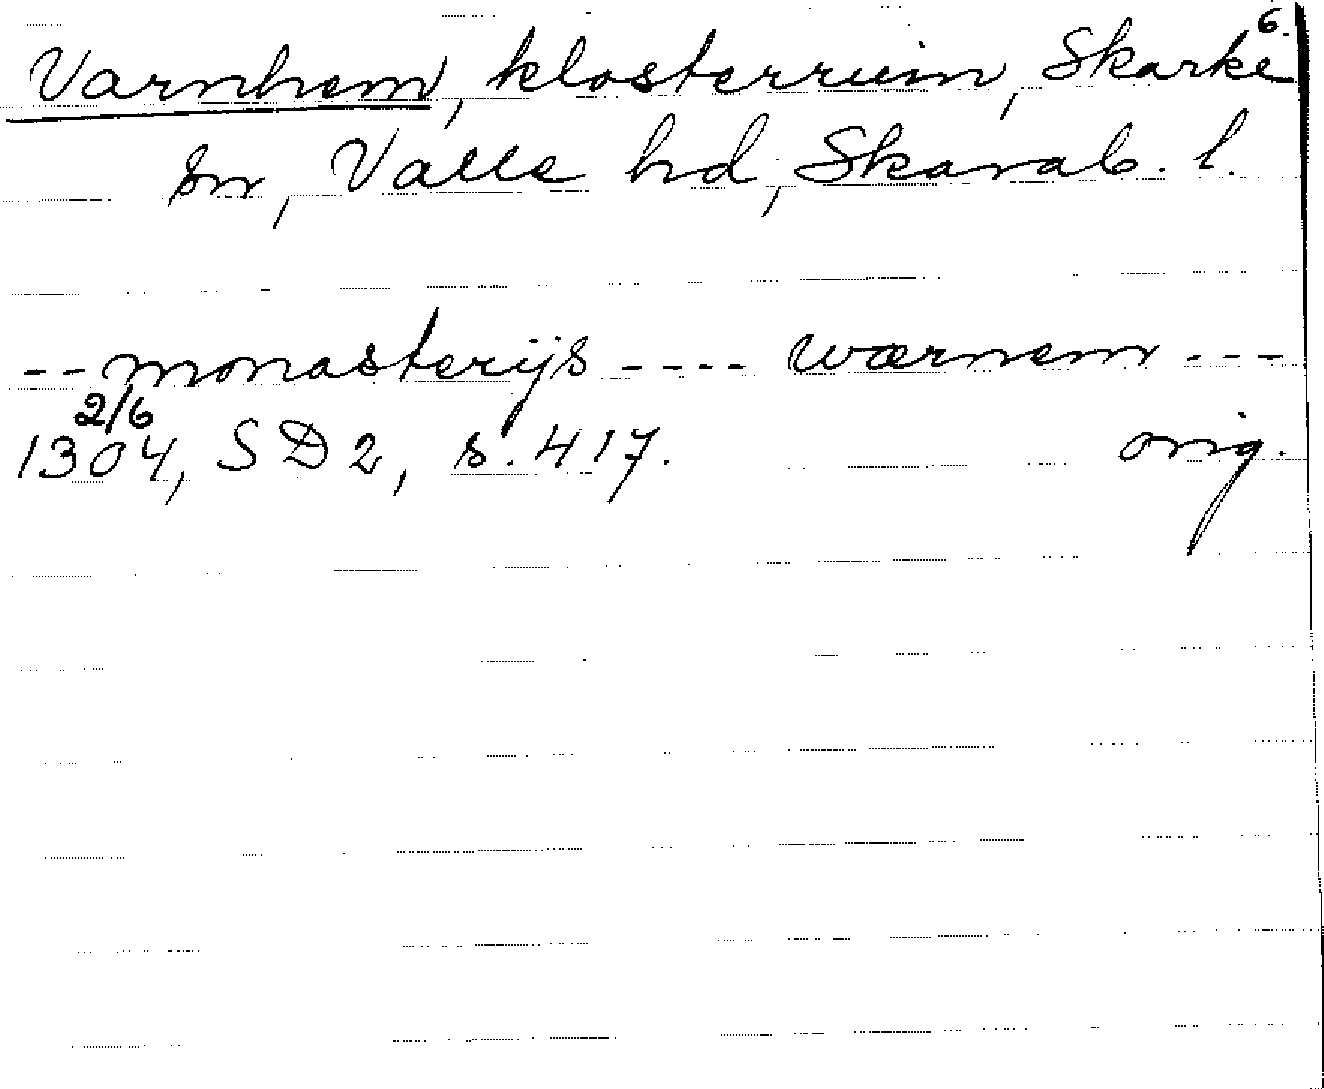 6.
Varnhem, klosterruin, Skarke
sn, Valle hd, Skarab. l.
-- monasterijs ---- wærnem ---
2/6
1304, SD 2, s. 417. orig.